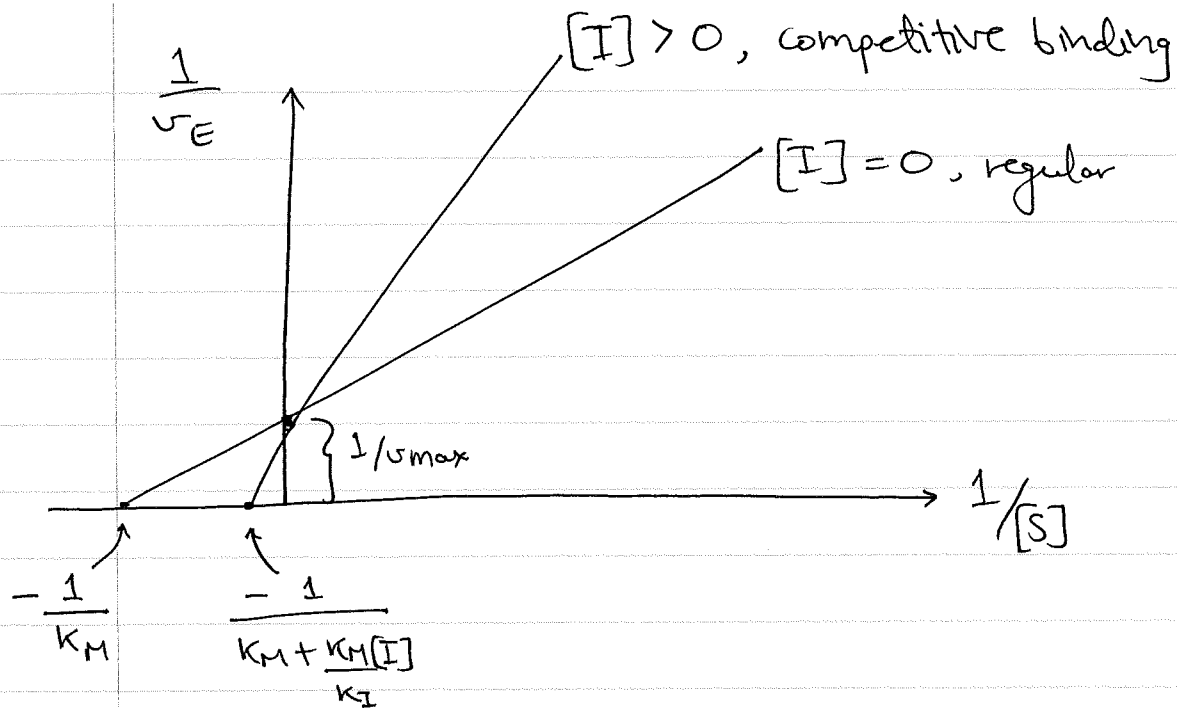 [I] > 0, competitive binding
1/v_E
[I] = 0, regular
1/vmax
1/[S]
- 1/K_M
- 1/(K_M + K_M[I]/K_I)